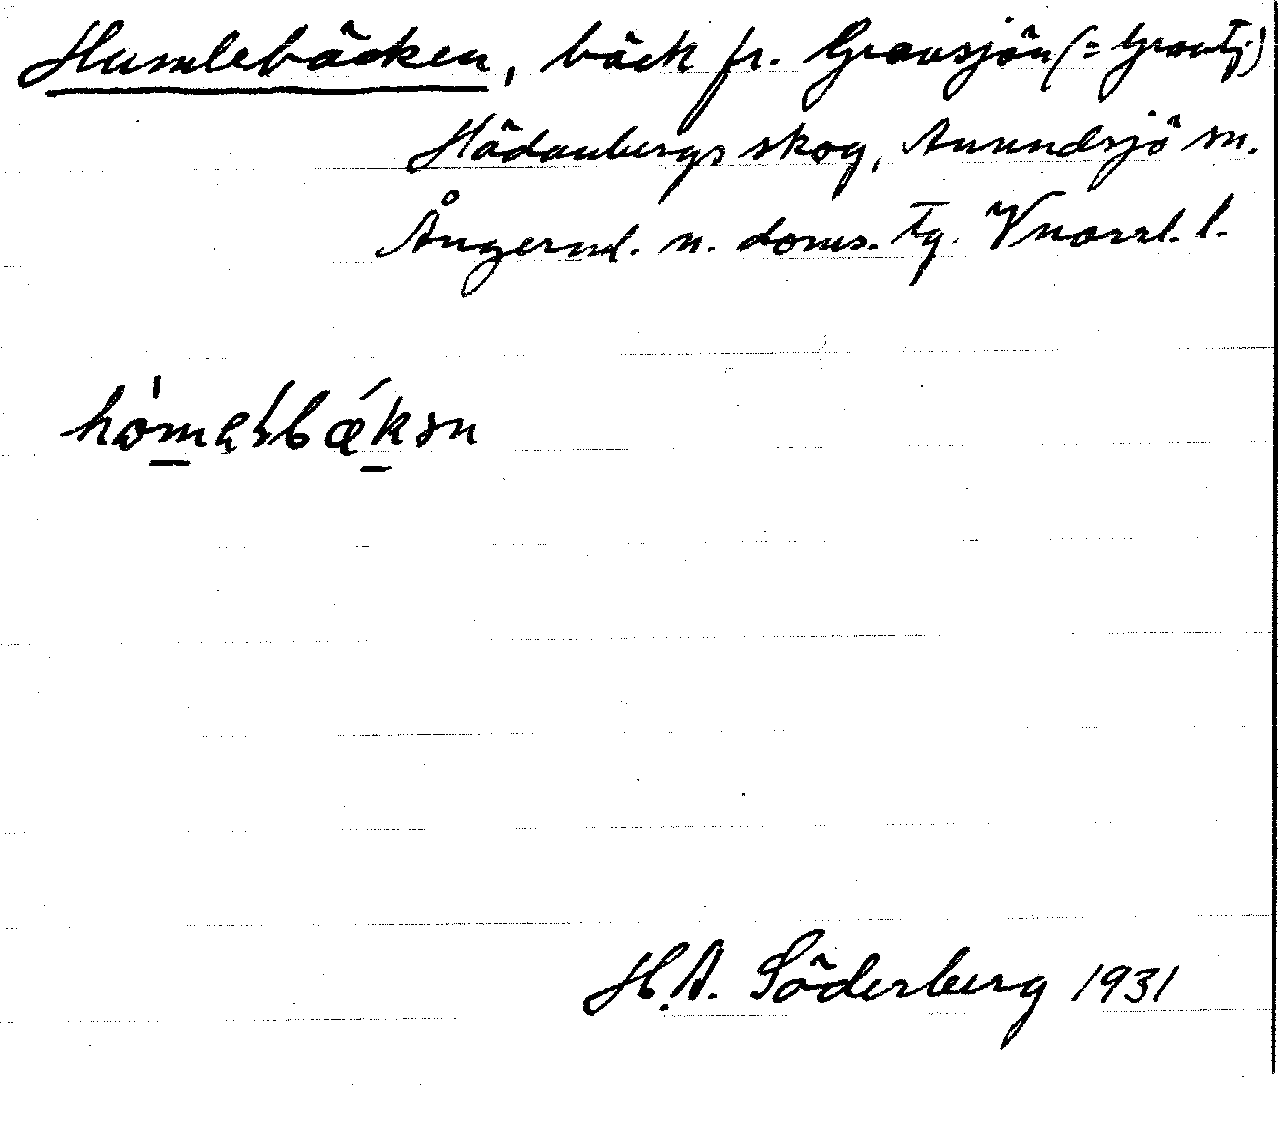 Humlebäcken, bäck fr. Gravsjön (= Gravtj)
Hädanbergs skog, Anundsjö sn.
Ångerml. n. doms. Tg. Vnorrl. l.
H.A. Söderberg 1931